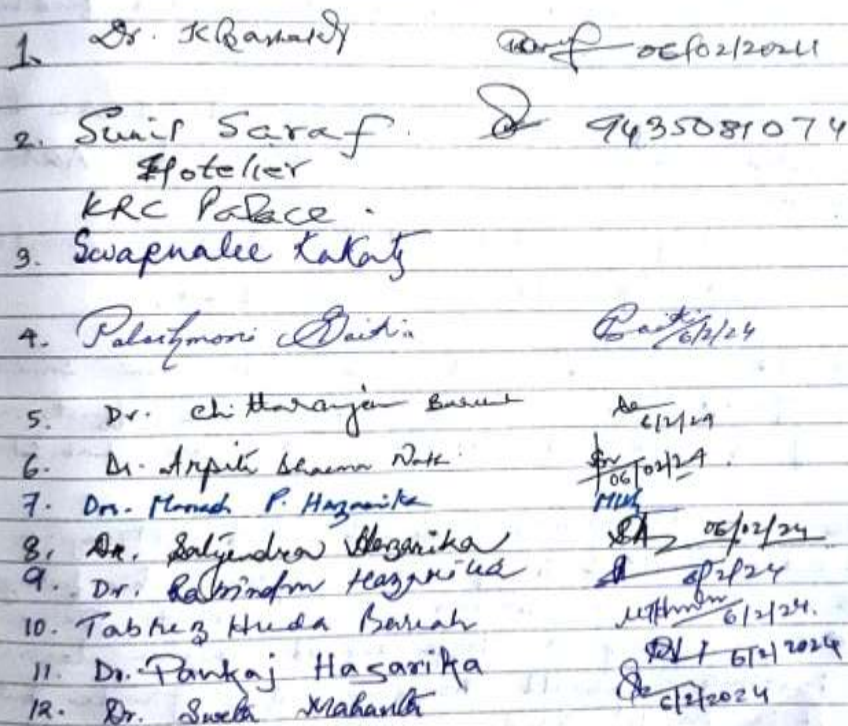 1. Dr. K 06/02/2024
2. Sunil Saraf 9435081074
Hotelier
KRC Palace.
3. Swapnalee Kakaty
4. Palashmoni Saikia 6/2/24
5. Dr. Chittaranjan 6/2/24
6. Dr. Arpita Sharma Nath 06/02/24
7. Dr. Manash P. Hazarika
8. Dr. Satyendra Hazarika 06/02/24
9. Dr. Rabindra Hazarika 6/2/24
10. Tabrez Huda Baruah 6/2/24.
11. Dr. Pankaj Hazarika 6/2/2024
12. Dr. Sweta Mahanta 6/2/2024